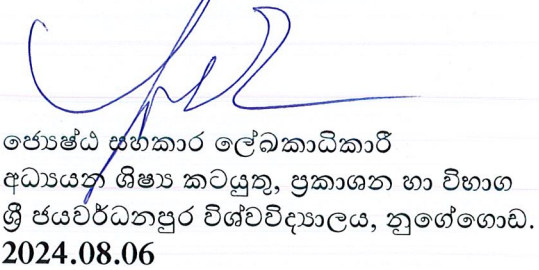 ජ්‍යෙෂ්ඨ සහකාර ලේඛකාධිකාරී
අධ්‍යයන ශිෂ්‍ය කටයුතු, ප්‍රකාශන හා විභාග
ශ්‍රී ජයවර්ධනපුර විශ්වවිද්‍යාලය, නුගේගොඩ.
2024.08.06